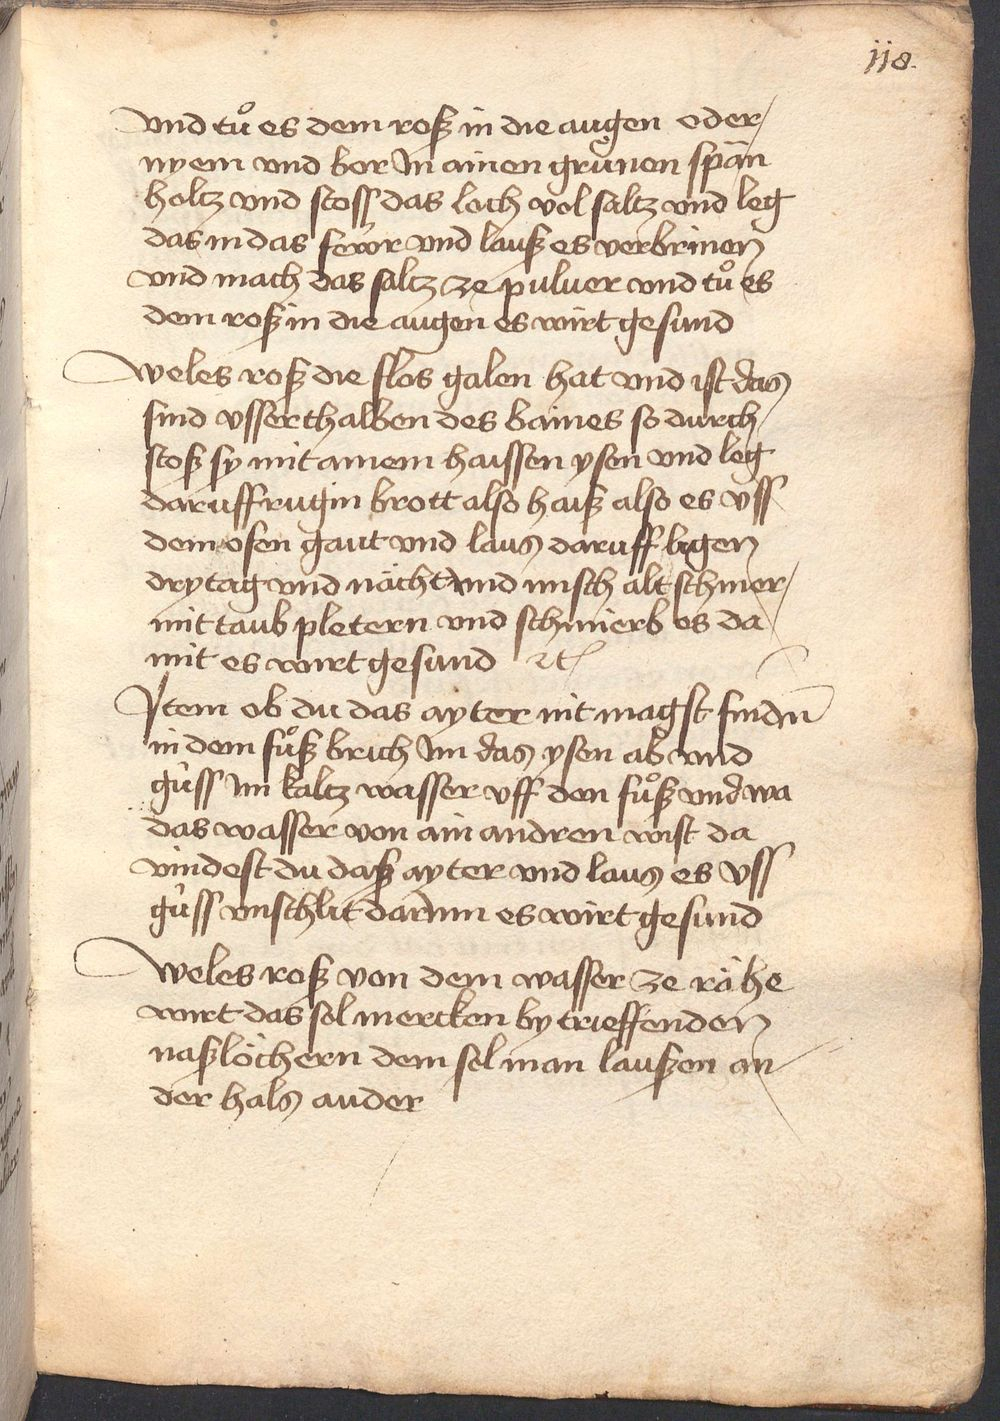 118.
vnd tuͦ es dem roß in die augen oder
nyem vnd bor In ainen gruͤnen span
holtz vnd stoss das loch vol saltz vnd leg
das in das fewr vnd lauß es verbrinen
vnd mach das saltz ze puluer vnd tuͦ es
dem roß in die augen es wirt gesund
weles roß die flos galen hat vnd ist das
sind vsserthalben des baines so durch
stoß sy mit ainem haissen ysen vnd leg
daruff rugin brott also haiß also es vss
dem ofen gaut vnd laus daruff ligen
dry tag vnd nächt vnd misch alt schmer
mit taub pletern vnd schmierb es da
mit es wirt gesund ꝛc
Item ob du das ayter nit magst findn̄
in dem fuͦß brich Im das ysen ab vnd
güss Im kaltz wasser vff den fuͦß vnd wa
das wasser von ain andren wist da
vindest du daß ayter vnd laus es vss
güss vnschlit darinn es wirt gesund
weles roß von dem wasser ze rähe
wirt das sol mercken by trieffenden
naßlöchern dem sol man laußen an
der hals auder